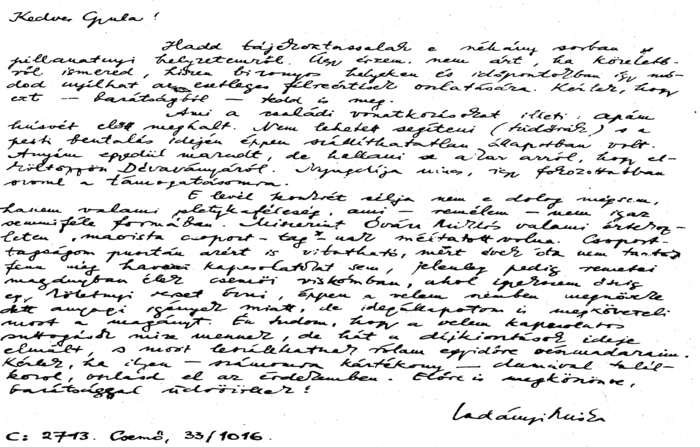 Kedves Gyula!
Hadd tájékoztassalak e néhány sorban
pillanatnyi helyzetemről. Úgy érzem, nem árt, ha közelebb-
ről ismered, hiszen bizonyos helyeken és időpontokban így mó-
dod nyílhat az esetleges félreértések oszlatására. Kérlek, hogy
ezt — barátságból — tedd is meg.
Ami a családi vonatkozásokat illeti: apám
húsvét előtt meghalt. Nem lehetett segíteni (tüdőrák) s a
pesti beutalás idején éppen szállíthatatlan állapotban volt.
Anyám egyedül maradt, de hallani se akar arról, hogy el-
költözzön Dévaványáról. Nyugdíja nincs, így fokozottabban
szorul a támogatásomra.
E levél konkrét célja nem e dolog mégsem,
hanem valami pletykaféleség, ami — remélem — nem igaz
semmiféle formában. Miszerint Óvári Miklós valami értekez-
leten "maoista csoport-tag"-nak méltatott volna. Csoport-
tagságom pusztán azért is vitatható, mert évek óta nem tartok
fenn még haveri kapcsolatokat sem, jelenleg pedig remetei
magányban élek csemői viskómban, ahol igyekszem őszig
egy kötetnyi verset írni, éppen a velem szemben megnövekedett
anyagi igények miatt, de idegállapotom is megköveteli
most a magányt. Én tudom, hogy a velem kapcsolatos
suttogások mire mennek, de hát a díjkiosztások ideje
elmúlt, s most leszállhatnak rólam egyidőre
Kérlek, ha ilyen — számomra kártékony — dumával talál-
kozol, oszlasd el az érdekemben. Előre is megköszönve,
barátsággal üdvözöllek:
Ladányi Miska
C: 2713. Csemő, 33/1016.